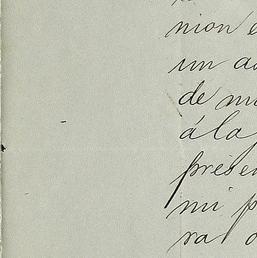 nion e
un ad
de mu
á la
presen
mi p
ra d